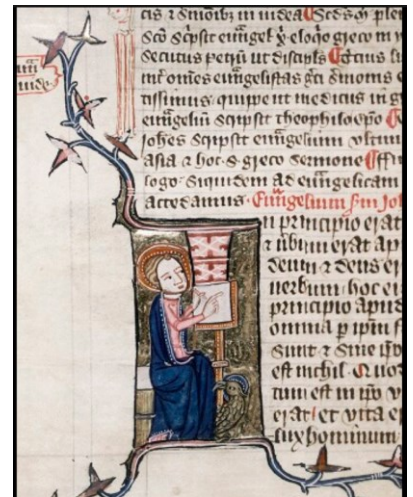 cis ⁊ dmoibz in iudea Scds
Sco scpsit euungel
Secutus petru ut discipls
int omes euungelistas
tissimus quippe ut medicus in g
euungeliu scpsit theophilo epo
Johes scpsit euungelium ultim
asia ⁊ hoc s greco sermone
logo Siquidem ad euungelicam
accedamus Euungelium
n principio erat
⁊ ubum erat ap
deum ⁊ deus er
uerbum hoc er
principio apud
omnia p ipm f
Sunt ⁊ Sine ipo
est nichil
tum est in ipo v
erat et vita er
lux hominum